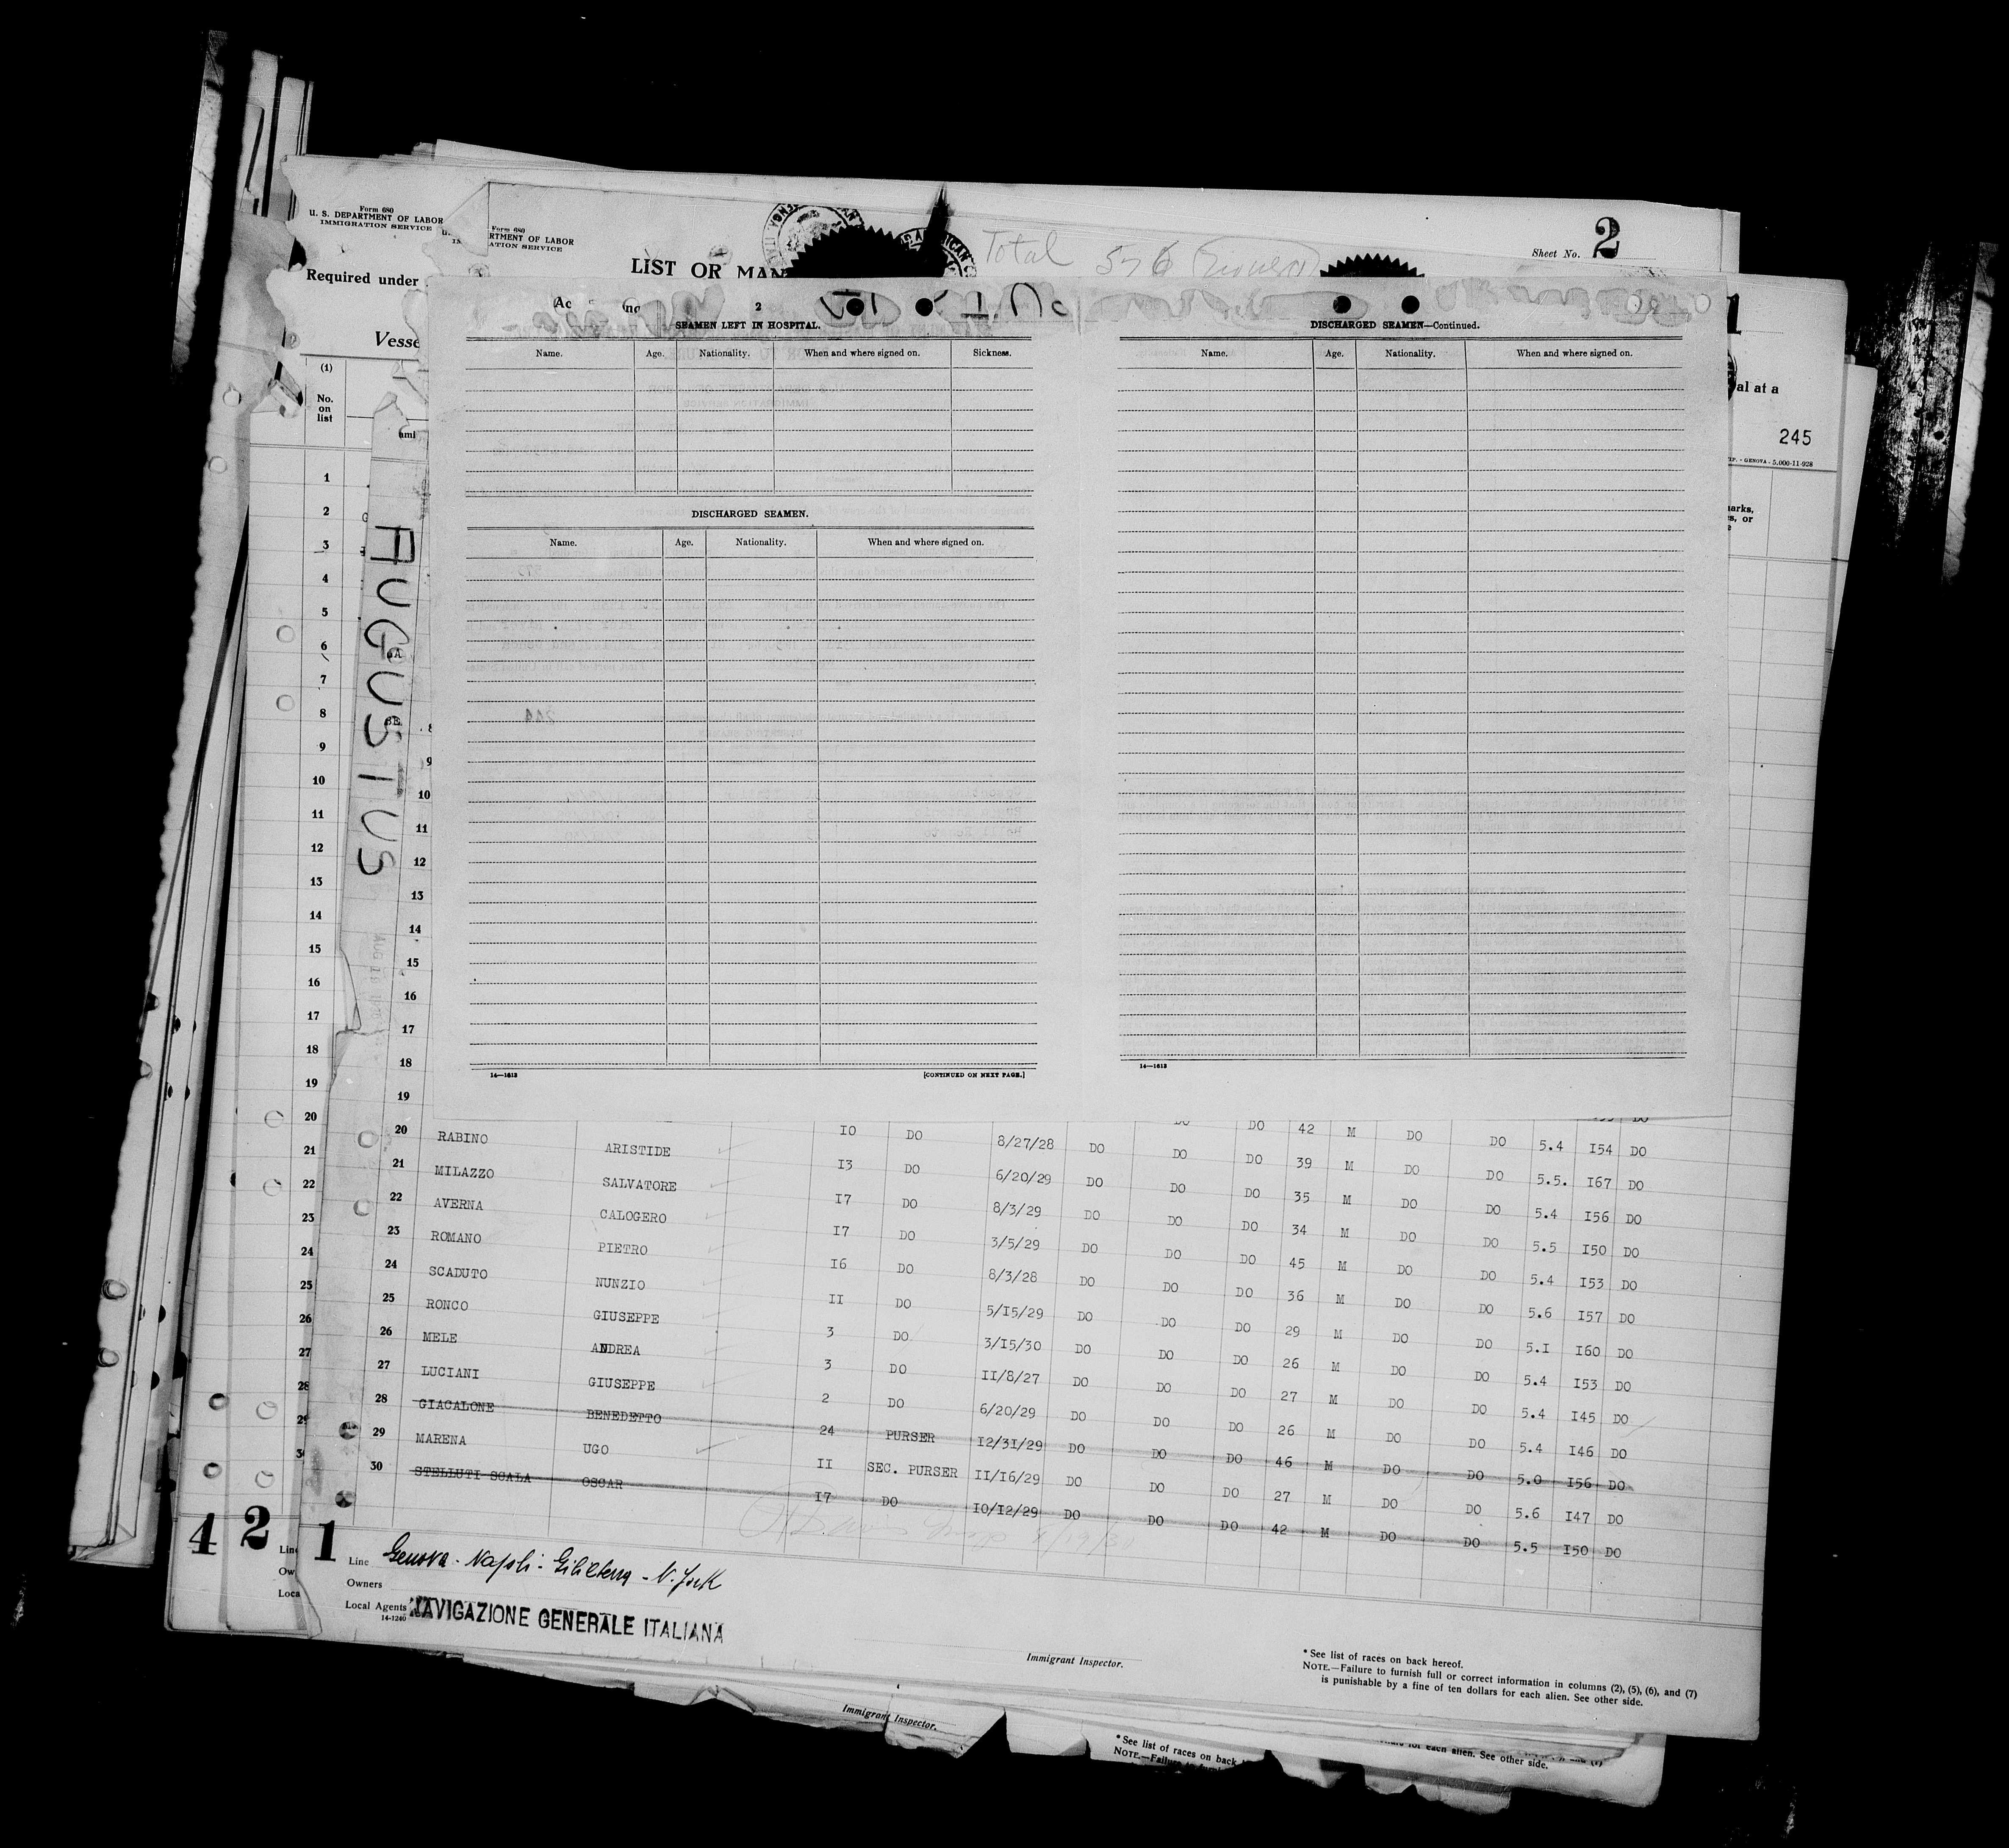 Form 680
U. S. DEPARTMENT OF LABOR
IMMIGRATION SERVICE
Form 680
RTMENT OF LABOR
ATION SERVICE
Required under
LIST OR MAN
Total 576
Sheet No. 2
Vesse
2
SEAMEN LEFT IN HOSPITAL.
Name. Age. Nationality. When and where signed on. Sickness.
DISCHARGED SEAMEN.
Name. Age. Nationality. When and where signed on.
14—1613 [CONTINUED ON NEXT PAGE.]
DISCHARGED SEAMEN—Continued.
Name. Age. Nationality. When and where signed on.
14—1613
1
al at a
245
TIP. - GENOVA - 5.000-11-928
arks,
s, or
(1)
No.
on
list
1
2
3
4
5
6
7
8
9
10
11
12
13
14
15
16
17
18
19
20
21
22
23
24
25
26
27
28
29
AUGUSTUS
9
10
11
12
13
14
15
16
17
18
DO DO 42 M DO DO 5.4 I54 DO
19 I0 DO 8/27/28 DO DO DO 39 M DO DO 5.5. I67 DO
20 RABINO ARISTIDE I3 DO 6/20/29 DO DO DO 35 M DO DO 5.4 I56 DO
21 MILAZZO SALVATORE I7 DO 8/3/29 DO DO DO 34 M DO DO 5.5 I50 DO
22 AVERNA CALOGERO I7 DO 3/5/29 DO DO DO 45 M DO DO 5.4 I53 DO
23 ROMANO PIETRO I6 DO 8/3/28 DO DO DO 36 M DO DO 5.6 I57 DO
24 SCADUTO NUNZIO II DO 5/I5/29 DO DO DO 29 M DO DO 5.I I60 DO
25 RONCO GIUSEPPE 3 DO 3/I5/30 DO DO DO 26 M DO DO 5.4 I53 DO
26 MELE ANDREA 3 DO II/8/27 DO DO DO 27 M DO DO 5.4 I45 DO
27 LUCIANI GIUSEPPE 2 DO 6/20/29 DO DO DO 26 M DO DO 5.4 I46 DO
28 GIACALONE BENEDETTO 24 PURSER I2/3I/29 DO DO DO 46 M DO DO 5.0 I56 DO
29 MARENA UGO II SEC. PURSER II/I6/29 DO DO DO 27 M DO DO 5.6 I47 DO
30 STELLUTI SCALA OSCAR I7 DO I0/I2/29 DO DO DO 42 M DO DO 5.5 I50 DO
4 2 1
Line Genova - Napoli - Gibilterra - N. York
Owners
Local Agents NAVIGAZIONE GENERALE ITALIANA
14-1240
Immigrant Inspector.
* See list of races on back hereof.
NOTE.—Failure to furnish full or correct information in columns (2), (5), (6), and (7)
is punishable by a fine of ten dollars for each alien. See other side.
Immigrant Inspector.
* See list of races on back
NOTE.—Failure
each alien. See other side.